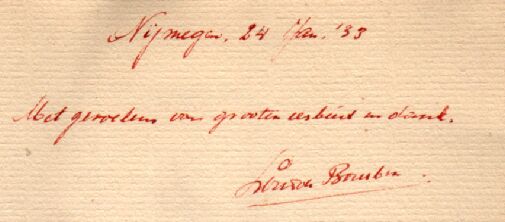 Nijmegen. 24 Jan. '33
Met gevoelens van grooten eerbied en dank.
Louis de Bourbon.